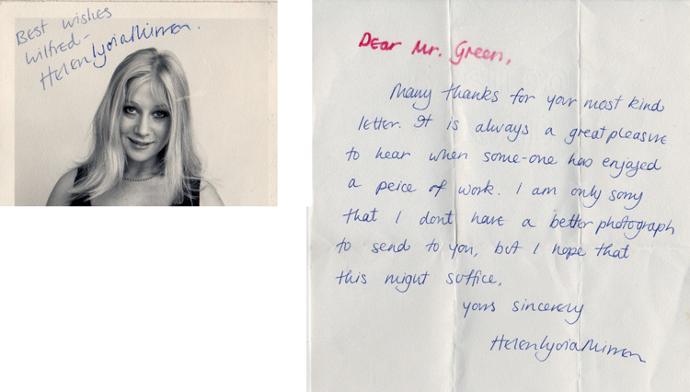 Best wishes
Wilfred-
Helen Lydia Mirren.
Dear Mr. Green,
Many thanks for your most kind
letter. It is always a great pleasure
to hear when some-one has enjoyed
a peice of work. I am only sorry
that I dont have a better photograph
to send to you, but I hope that
this might suffice.
yours sincerely
Helen Lydia Mirren